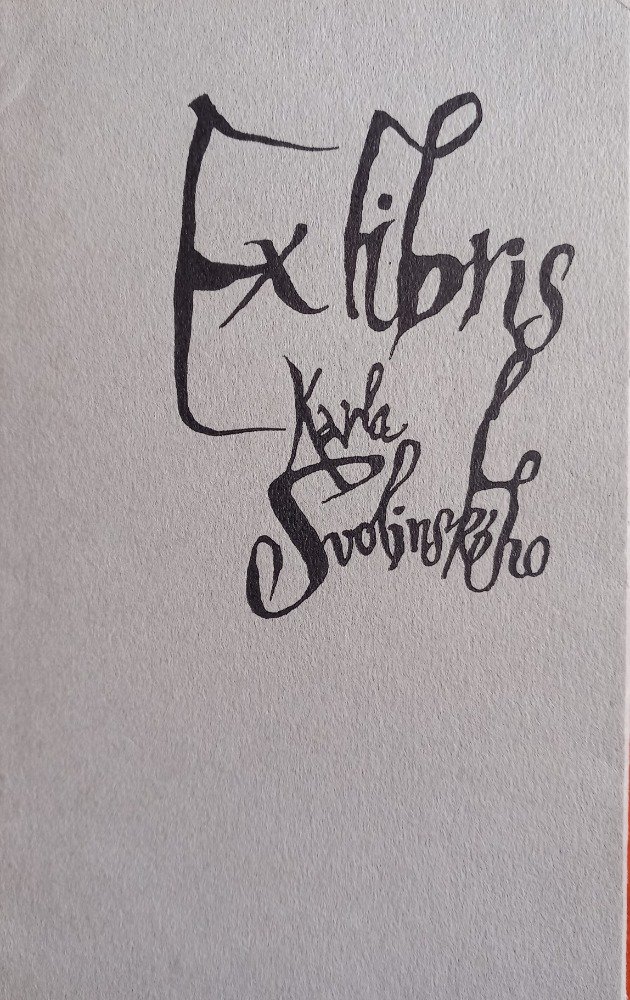 Ex libris
Karla
Svolinského